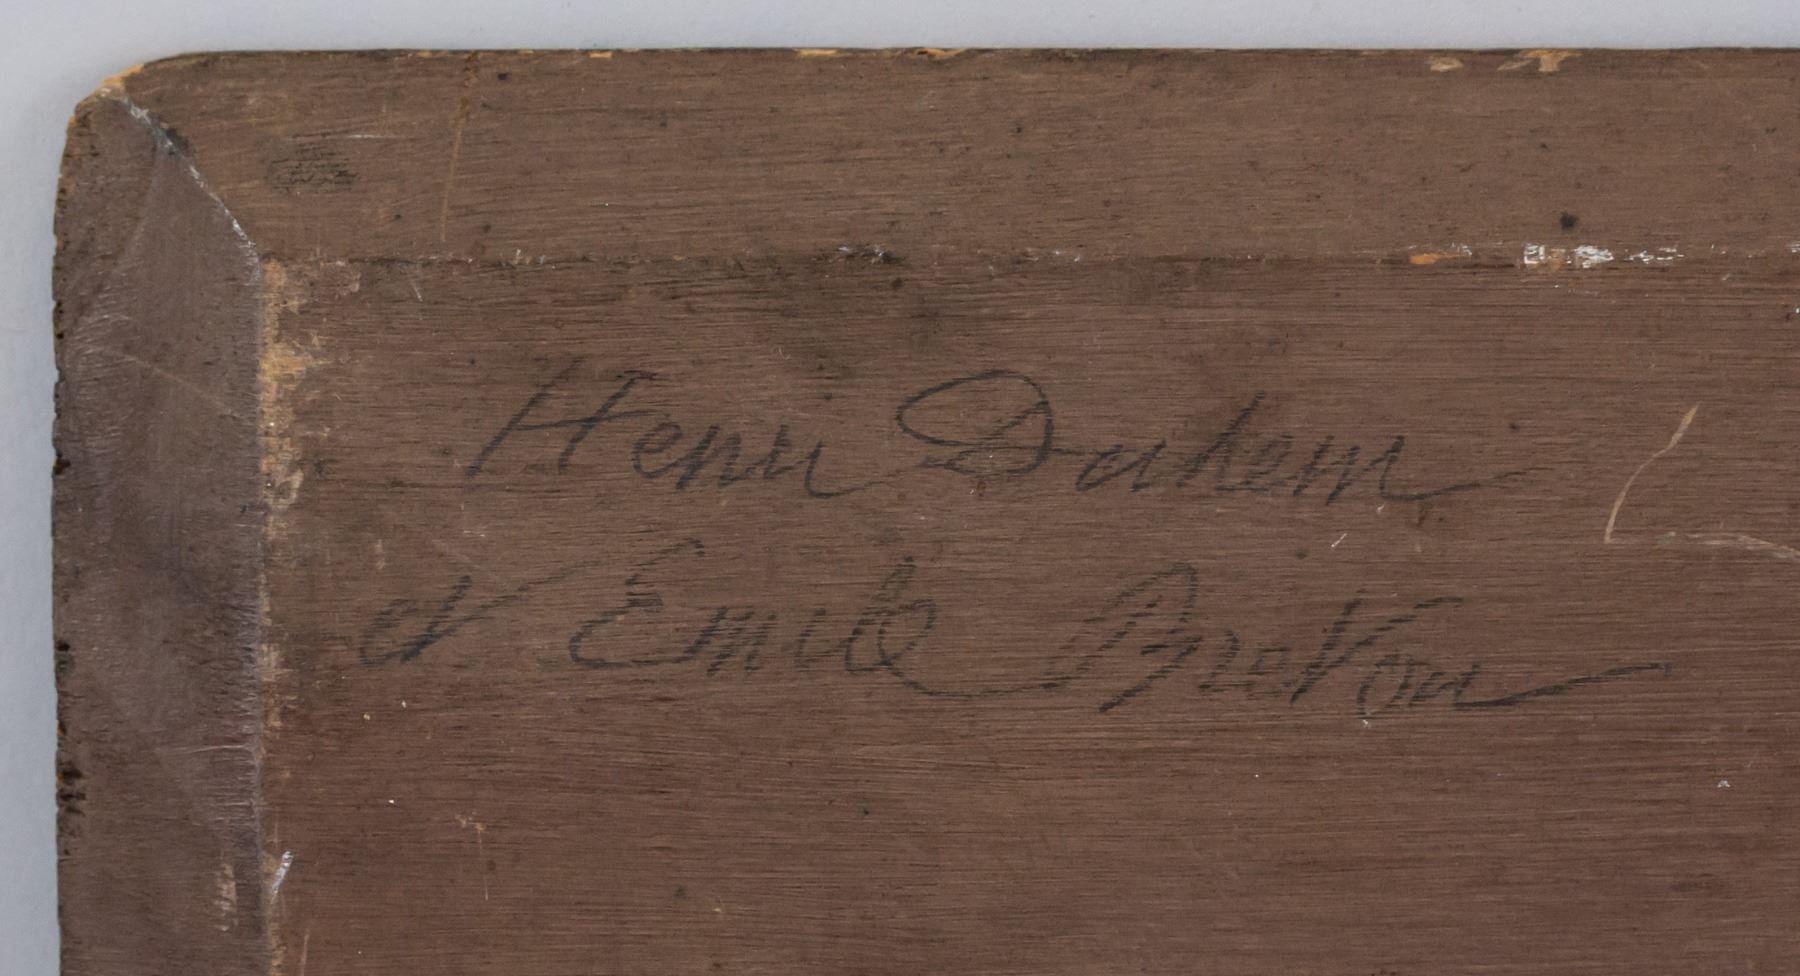 Henri Duhem
et Emile Breton